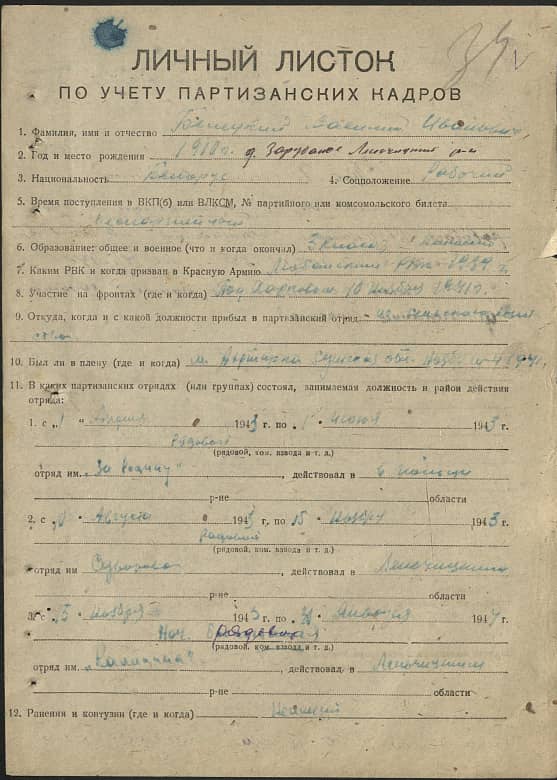 ЛИЧНЫЙ ЛИСТОК
ПО УЧЕТУ ПАРТИЗАНСКИХ КАДРОВ
1. Фамилия, имя и отчество Иванович
2. Год и место рождения 1918 г. д. р-н
3. Национальность Беларус 4. Соцположение Рабочий
5. Время поступления в ВКП(б) или ВЛКСМ, № партийного или комсомольского билета
беспартийный
6. Образование: общее и военное (что и когда окончил) 3 класса
7. Каким РВК и когда призван в Красную Армию РВК 1939 г.
8. Участие на фронтах (где и когда) Под Харьковом 10 ноября 1941 г.
9. Откуда, когда и с какой должности прибыл в партизанский отряд
10. Был ли в плену (где и когда) м. Ахтырка Сумская обл. ноябрь 1941
11. В каких партизанских отрядах (или группах) состоял, занимаемая должность и район действия
отряда:
1. с „1“ Апреля 1943 г. по 1 июня 1943 г.
рядовой
(рядовой, ком. взвода и т. д.)
отряд им. „За Родину“, действовал в
р-не области
2. с Августа 1943 г. по 15 ноября 1943 г.
рядовой
(рядовой, ком. взвода и т. д.)
отряд им Суворова, действовал в Лельчицком
р-не области
3. с 15 ноября 1943 г. по Января 1944 г.
рядовой
(рядовой, ком. взвода и т. д.)
отряд им. „Калинина“ действовал в Лельчицком
р-не области
12. Ранения и контузии (где и когда)